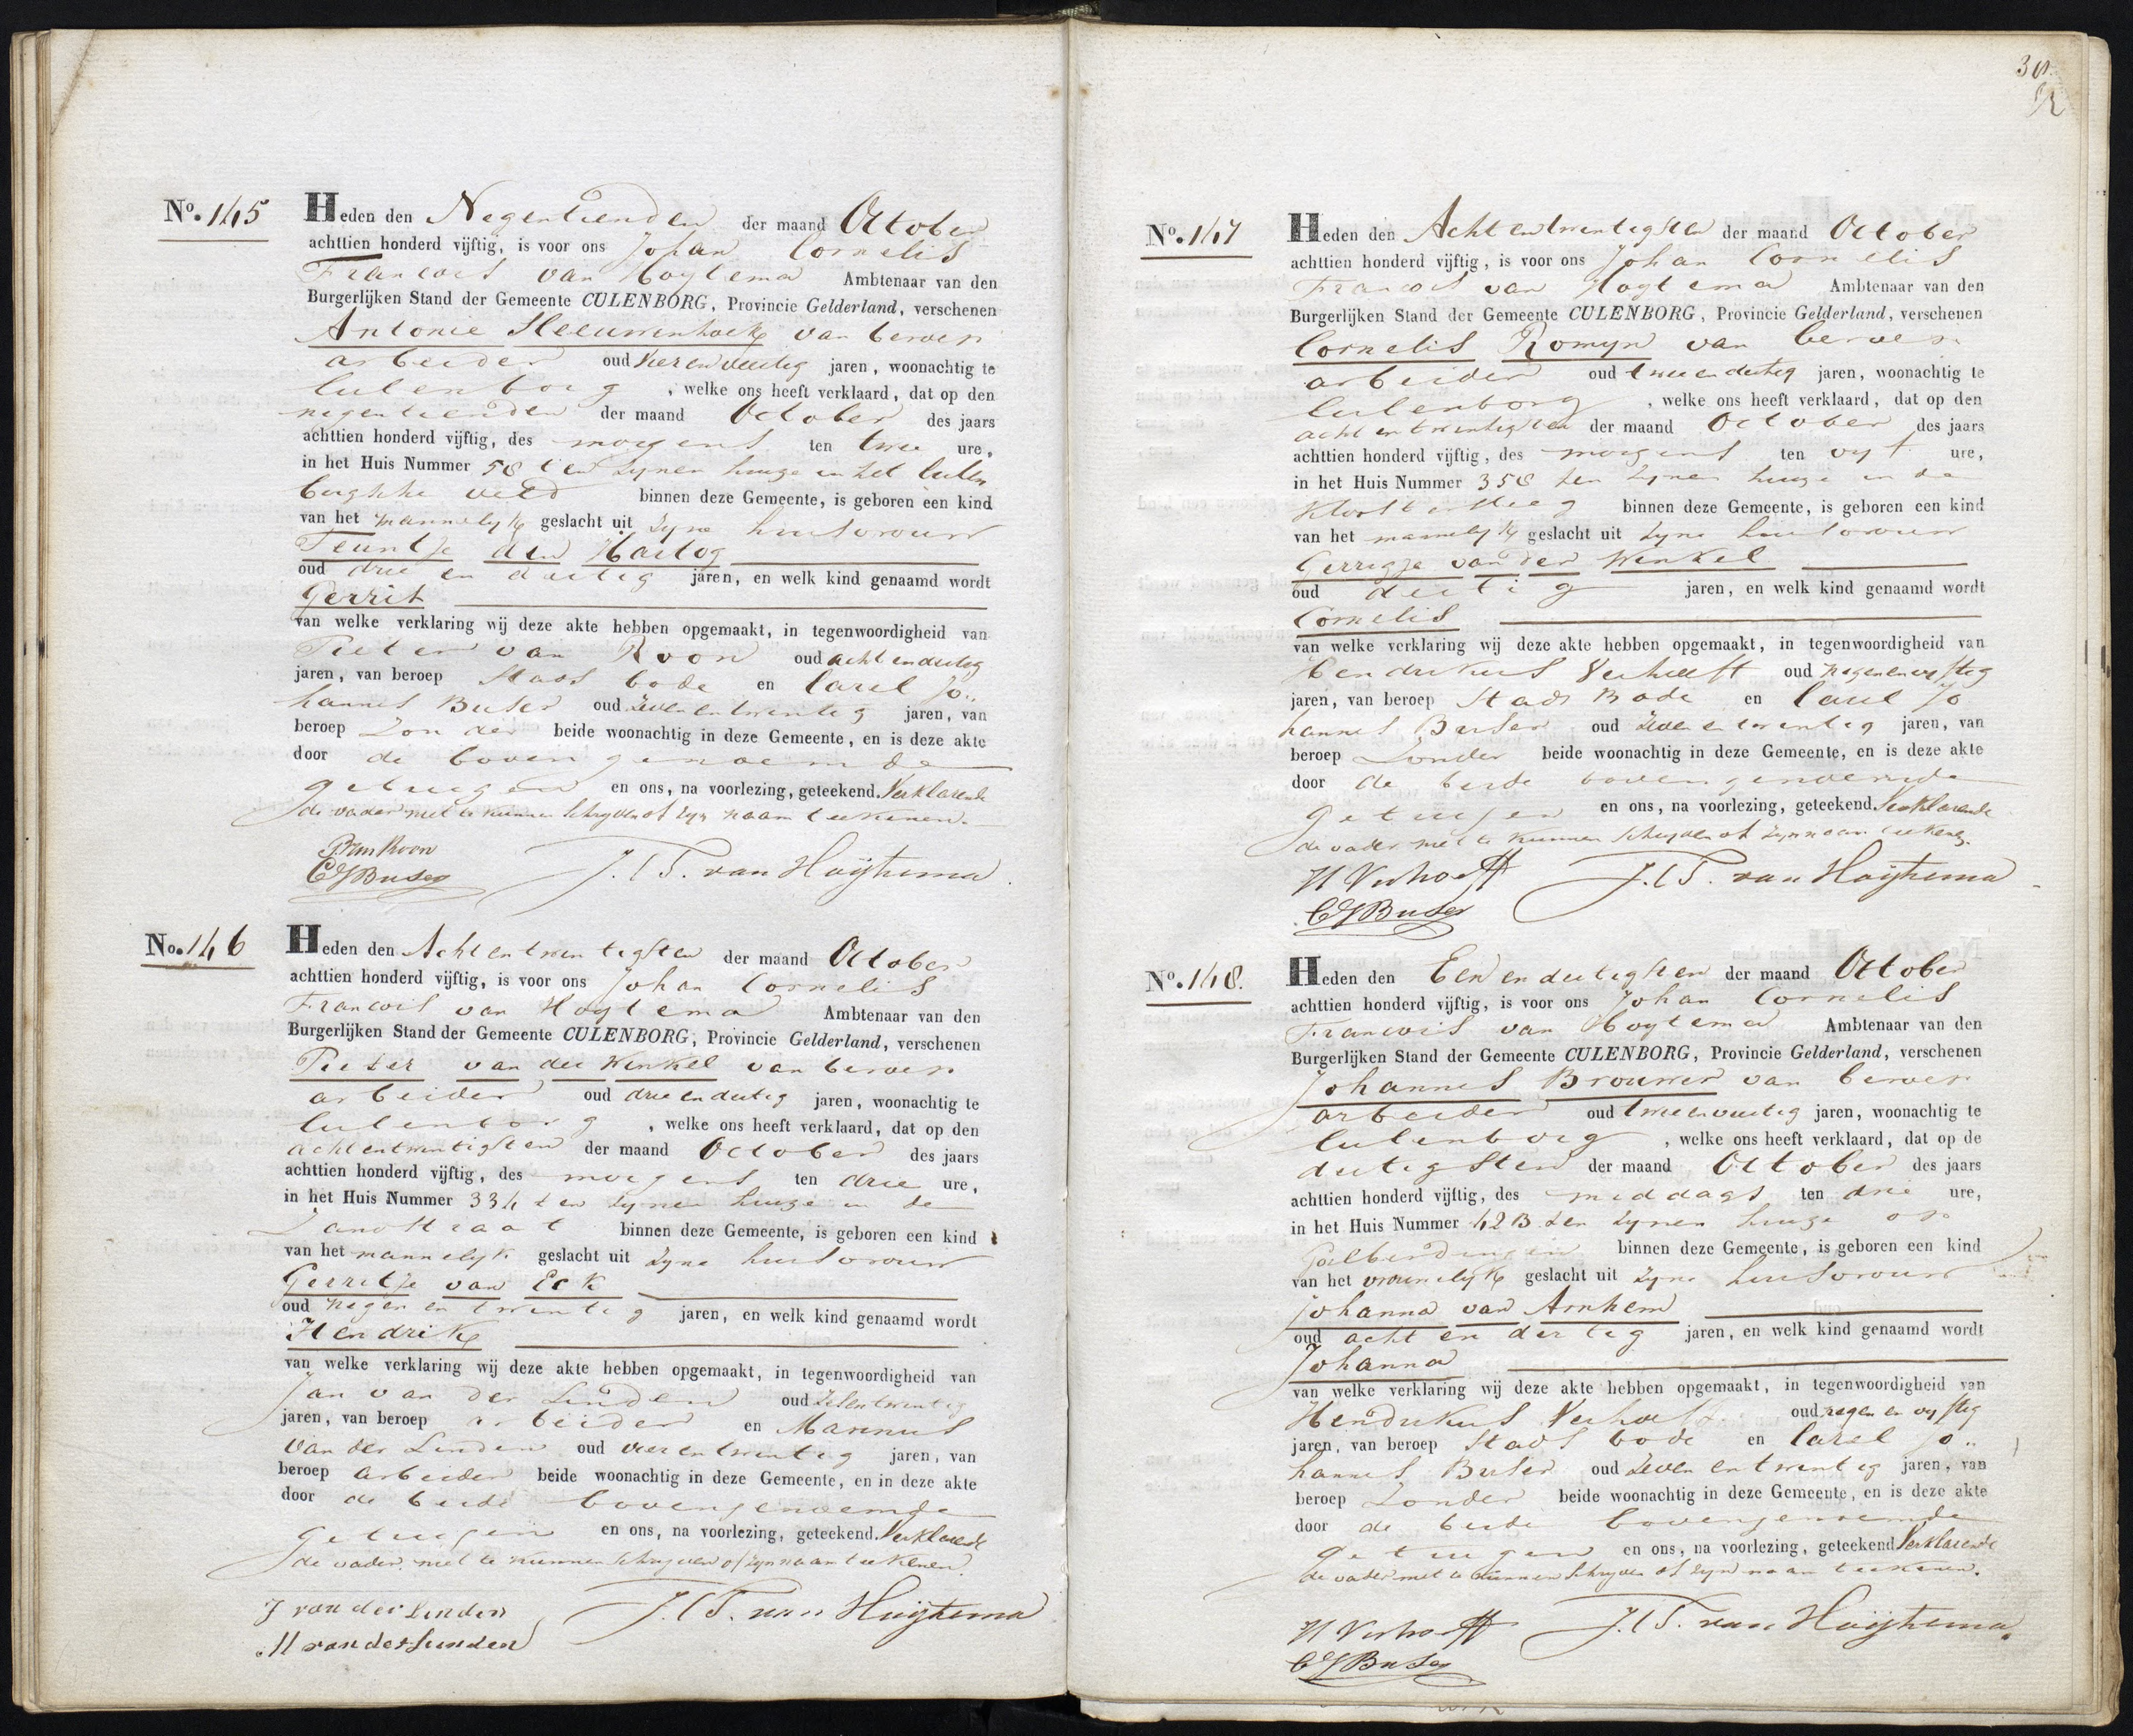 No. 145
Heden den Negentienden der maand October
achttien honderd vijftig, is voor ons Johan Cornelis
Francois van Hoytema Ambtenaar van den
Burgerlijken Stand der Gemeente CULENBORG, Provincie Gelderland, verschenen
Antonie Sleeuwenhoek van beroep
arbeider oud vierenveertig jaren, woonachtig te
Culenborg, welke ons heeft verklaard, dat op den
negentienden der maand October des jaars
achttien honderd vijftig, des morgens ten twee ure,
in het Huis Nummer 58 ten zynen huize in het Culen
borgsche veld binnen deze Gemeente, is geboren een kind
van het mannelyk geslacht uit zyne huisvrouw
Teuntje den Hartog
oud drie en dertig jaren, en welk kind genaamd wordt
Gerrit
van welke verklaring wij deze akte hebben opgemaakt, in tegenwoordigheid van
Pieter van Roon oud acht endertig
jaren, van beroep Stads bode en Carel Jo..
hannes Buser oud zevenentwentig jaren, van
beroep Zonder beide woonachtig in deze Gemeente, en is deze akte
door de bovengenoemde
getuigen en ons, na voorlezing, geteekend. Verklarende
de vader niet te kunnen schryven of zyn naam teekenen.
P van Roon
CJ Buser J.C.F. van Hoÿtema
No. 146
Heden den Achtentwentigsten der maand October
achttien honderd vijftig, is voor ons Johan Cornelis
Francois van Hoytema Ambtenaar van den
Burgerlijken Stand der Gemeente CULENBORG, Provincie Gelderland, verschenen
Pieter van der Winkel van beroep
arbeider oud drieendertig jaren, woonachtig te
Culenborg, welke ons heeft verklaard, dat op den
achtentwentigsten der maand October des jaars
achttien honderd vijftig, des morgens ten drie ure,
in het Huis Nummer 334 ten zynen huize in de
Zandstraat binnen deze Gemeente, is geboren een kind
van het mannelyk geslacht uit zyne huisvrouw
Gerritje van Eck
oud negen en twentig jaren, en welk kind genaamd wordt
Hendrik
van welke verklaring wij deze akte hebben opgemaakt, in tegenwoordigheid van
Jan van der Linden oud zesentwentig
jaren, van beroep arbeider en Marinus
van der Linden oud vierentwentig jaren, van
beroep arbeider beide woonachtig in deze Gemeente, en in deze akte
door de beide bovengenoemde
getuigen en ons, na voorlezing, geteekend. Verklarende
de vader niet te kunnen schryven of zyn naam teekenen.
J van der Linden J.C.F. van Hoÿtema
M van der Linden
No. 147
Heden den Achtentwentigsten der maand October
achttien honderd vijftig, is voor ons Johan Cornelis
Francois van Hoytema Ambtenaar van den
Burgerlijken Stand der Gemeente CULENBORG, Provincie Gelderland, verschenen
Cornelis Romyn van beroep
arbeider oud tweeendertig jaren, woonachtig te
Culenborg, welke ons heeft verklaard, dat op den
achtentwentigsten der maand October des jaars
achttien honderd vijftig, des morgens ten vyf ure,
in het Huis Nummer 358 ten zynen huize in de
Kloostersteeg binnen deze Gemeente, is geboren een kind
van het mannelyk geslacht uit zyne huisvrouw
Gerrigje van der Winkel
oud dertig jaren, en welk kind genaamd wordt
Cornelis
van welke verklaring wij deze akte hebben opgemaakt, in tegenwoordigheid van
Hendrikus Verhoeff oud negenenvyftig
jaren, van beroep Stads Bode en Carel Jo
hannes Buser oud zevenentwentig jaren, van
beroep Zonder beide woonachtig in deze Gemeente, en is deze akte
door de beide bovengenoemde
getuigen en ons, na voorlezing, geteekend. Verklarende
de vader niet te kunnen schryven of zyn naam teekenen.
H Verhoeff J.C.F. van Hoÿtema
CJ Buser
No. 148.
Heden den Eenendertigsten der maand October
achttien honderd vijftig, is voor ons Johan Cornelis
Francois van Hoytema Ambtenaar van den
Burgerlijken Stand der Gemeente CULENBORG, Provincie Gelderland, verschenen
Johannes Brouwer van beroep
arbeider oud tweeenveertig jaren, woonachtig te
Culenborg, welke ons heeft verklaard, dat op de
dertigsten der maand October des jaars
achttien honderd vijftig, des middags ten drie ure,
in het Huis Nummer 42B ten zynen huize op
Golberdingen binnen deze Gemeente, is geboren een kind
van het vrouwelyk geslacht uit zyne huisvrouw
Johanna van Arnhem
oud acht en dertig jaren, en welk kind genaamd wordt
Johanna
van welke verklaring wij deze akte hebben opgemaakt, in tegenwoordigheid van
Hendrikus Verhoeff oud negen en vyftig
jaren, van beroep Stads bode en Carel Jo..
hannes Buser oud zevenentwentig jaren, van
beroep Zonder beide woonachtig in deze Gemeente, en is deze akte
door de beide bovengenoemde
getuigen en ons, na voorlezing, geteekend Verklarende
de vader niet te kunnen schryven of zyn naam teekenen.
H Verhoeff J.C.F. van Hoÿtema
CJ Buser